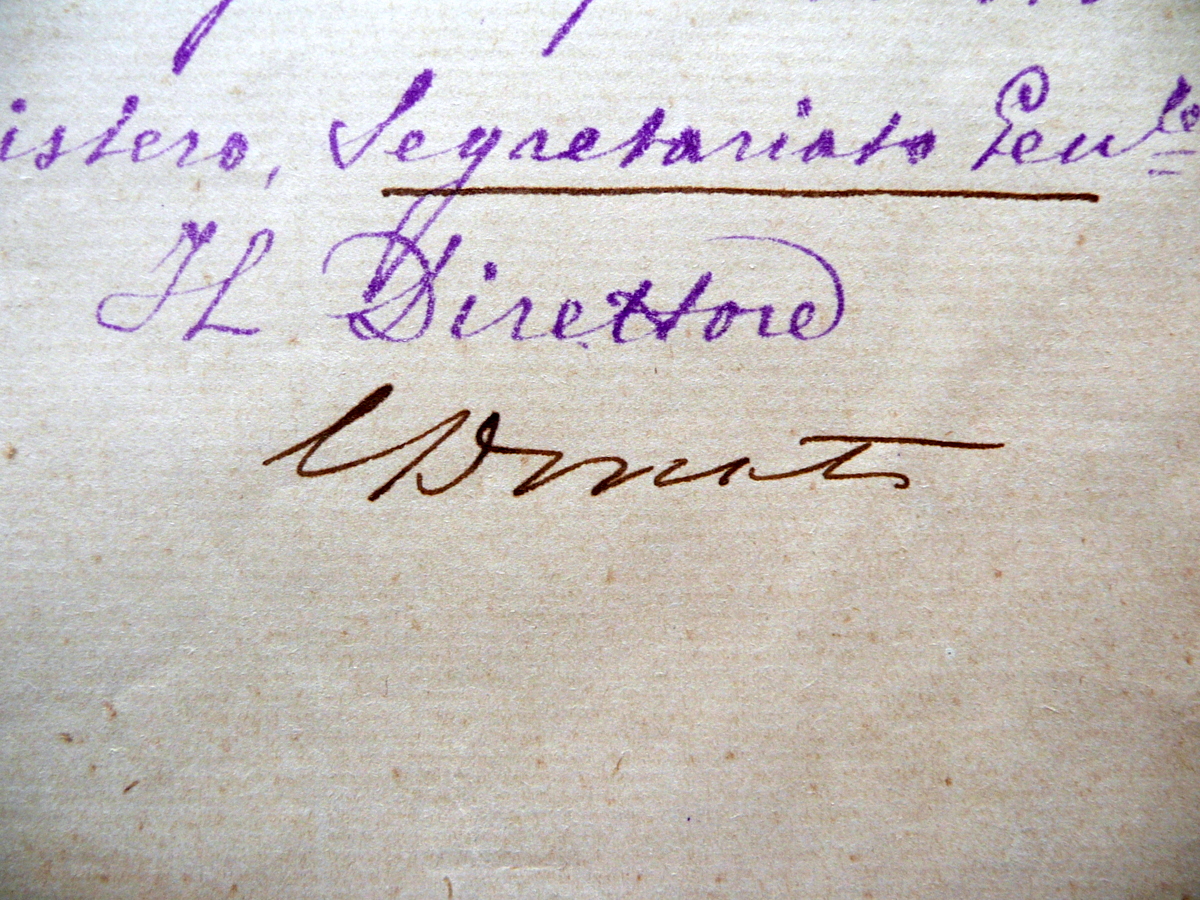 istero, Segretariato Genle
Il Direttore
CDonati